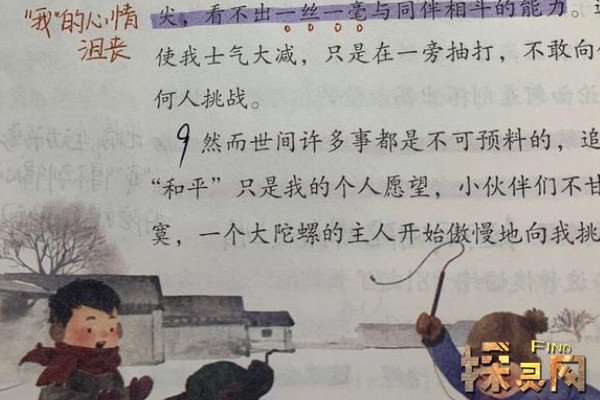 "我"的心情
沮丧
尖，看不出一丝一毫与同伴相斗的能力。
使我士气大减，只是在一旁抽打，不敢向
何人挑战。
9 然而世间许多事都是不可预料的，追
“和平”只是我的个人愿望，小伙伴们不甘
寞，一个大陀螺的主人开始傲慢地向我挑
FIND
探灵网